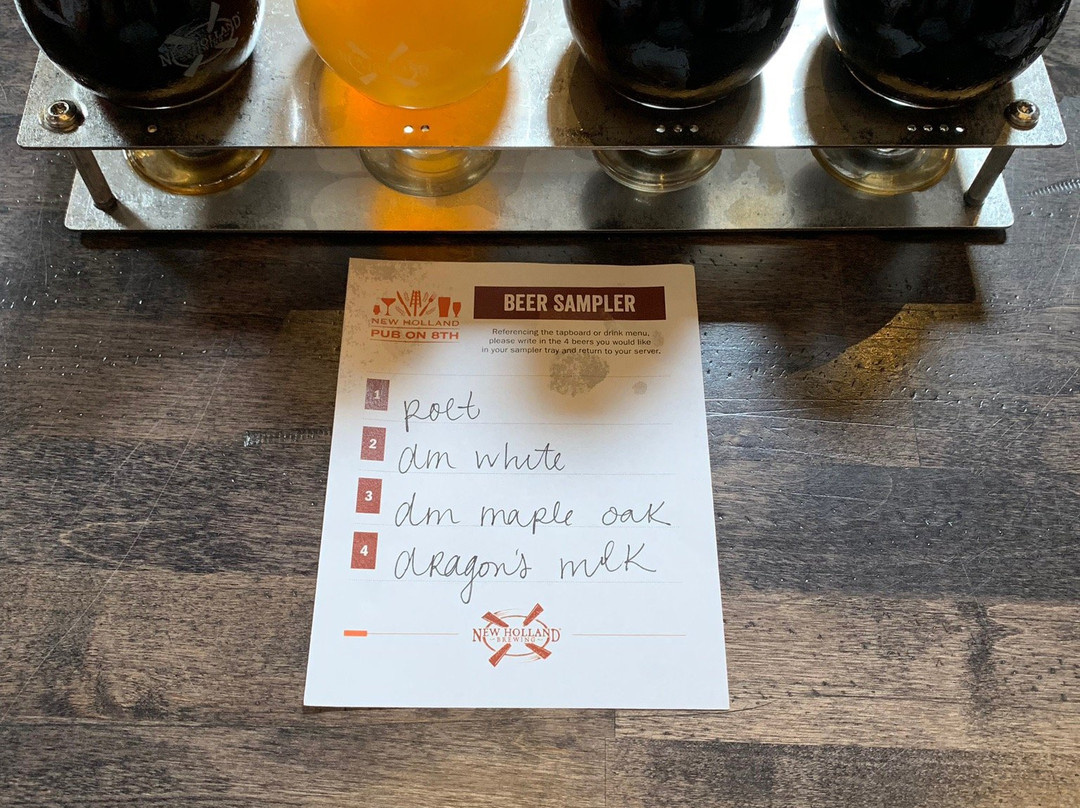 NEW HOLLAND
NEW HOLLAND
PUB ON 8TH
BEER SAMPLER
Referencing the tapboard or drink menu,
please write in the 4 beers you would like
in your sampler tray and return to your server.
1 poet
2 dm white
3 dm maple oak
4 dragon's milk
NEW HOLLAND
BREWING